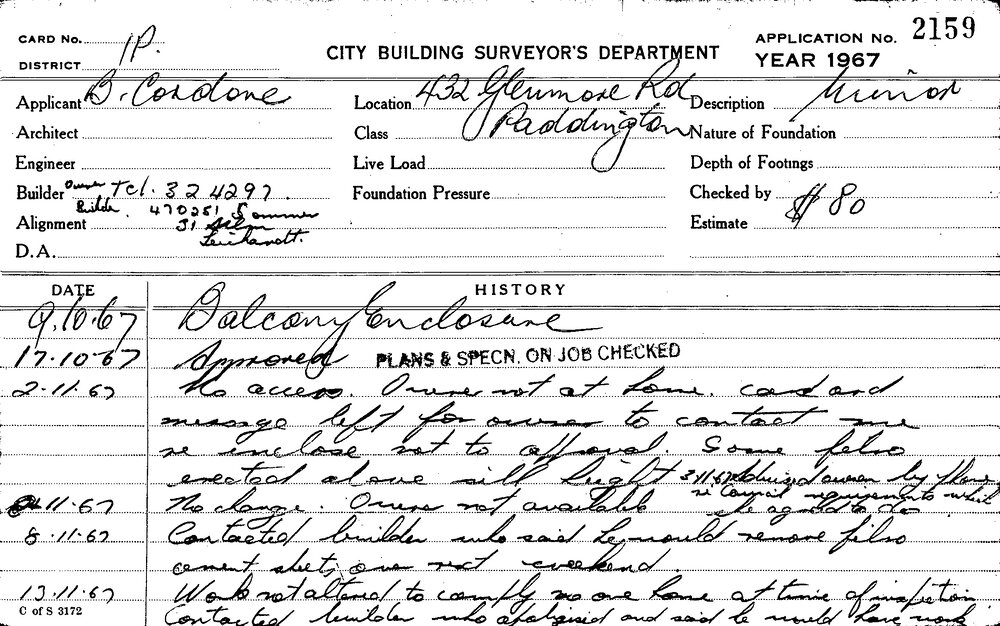 CARD No. 1P.
DISTRICT
CITY BUILDING SURVEYOR'S DEPARTMENT
APPLICATION No. 2159
YEAR 1967
Applicant B. Cordone
Location 432 Glenmore Rd
Description Minor
Architect
Class Paddington
Nature of Foundation
Engineer
Live Load
Depth of Footings
Builder Owner Tel. 324297.
Foundation Pressure
Checked by
Builder. 470251 5 Sommer
Alignment 31
Estimate $80
Leichardt.
D.A.
DATE
HISTORY
9.10.67 Balcony Enclosure
17-10-67 Approved PLANS & SPECN. ON JOB CHECKED
2-11-67 No access. Owner not at home. card and
message left for owner to contact me
re enclose not to approval. Some fibro
erected above sill height 3/11/67 Advised owner by phone
re Council requirements which
11-67 No change. Owner not available she agreed to do
8-11-67 Contacted builder who said he would remove fibro
cement sheets over next weekend.
13-11-67 Work not altered to comply no one home at time of inspection
C of S 3172
Contacted builder who apologised and said he would have work